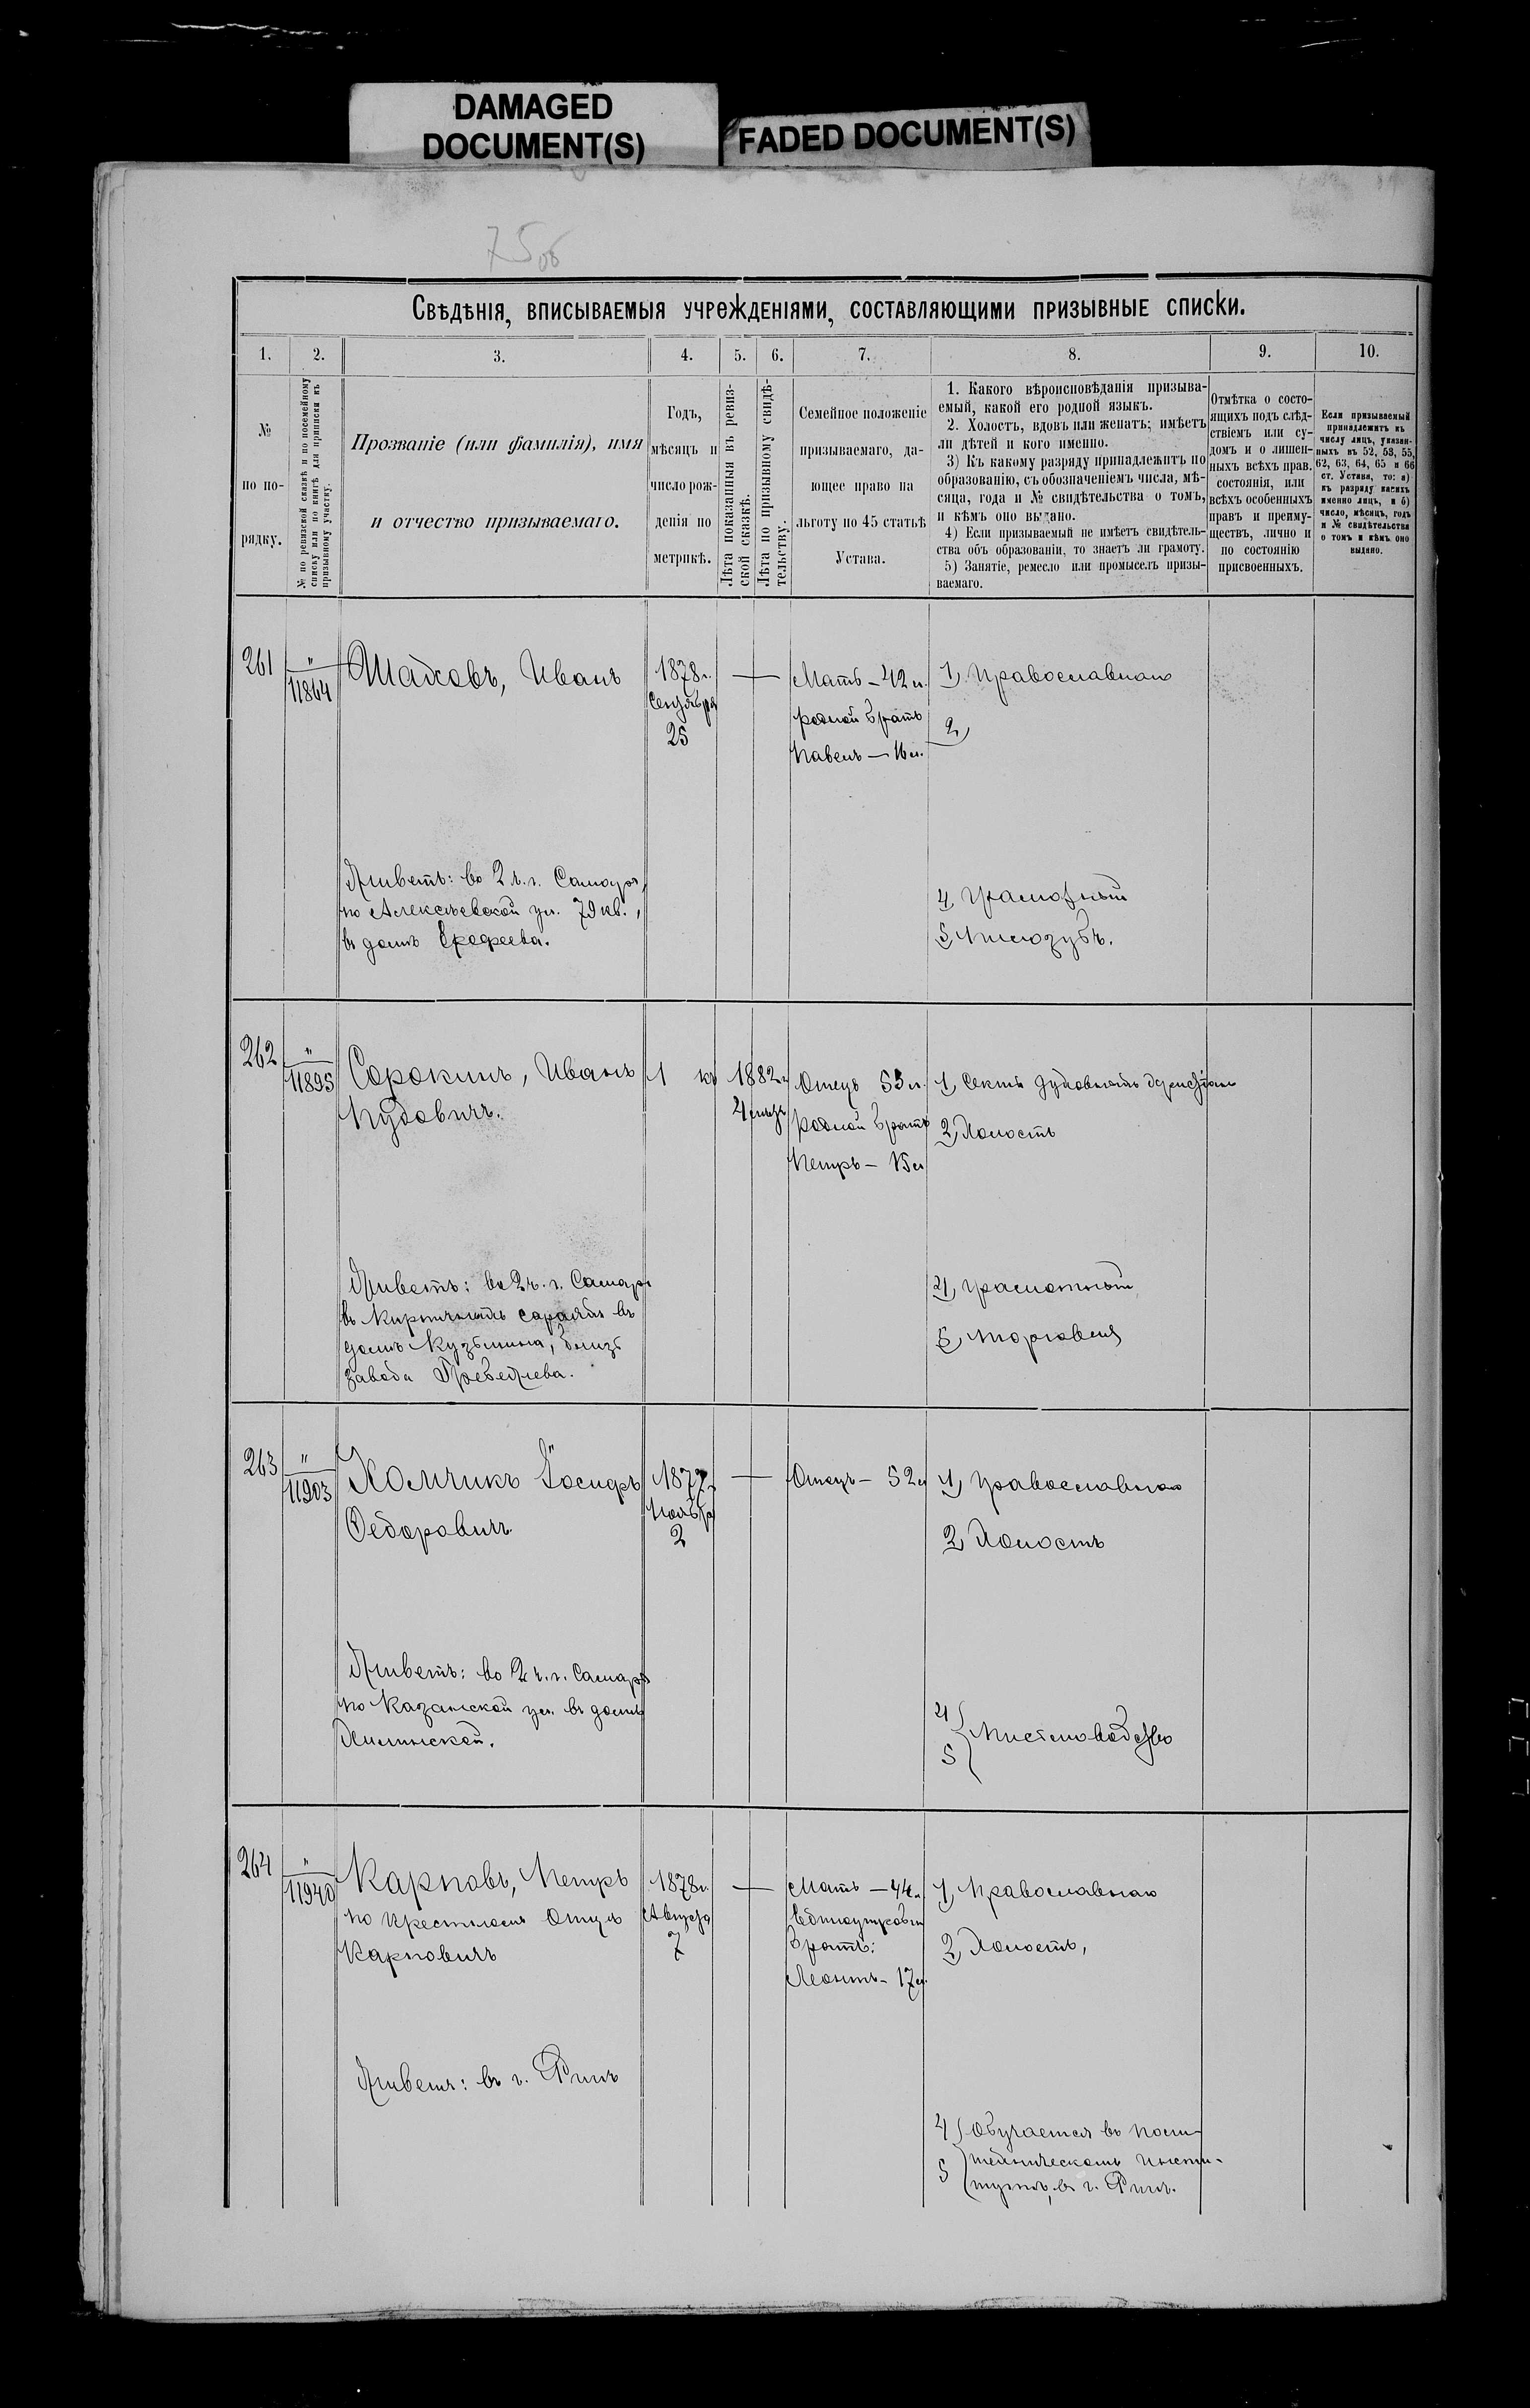 DAMAGED
DOCUMENT(S)
FADED DOCUMENT(S)
75об
Свѣдѣнія, вписываемыя учрежденіями, составляющими призывные списки.
1.
2.
3.
4.
5.
6.
7.
8.
9.
10.
№
по по-
рядку.
№ по ревизской сказкѣ и по посемейному
списку или по книгѣ для приписки къ
призывному участку.
Прозваніе (или фамилія), имя
и отчество призываемаго.
Годъ,
мѣсяцъ и
число рож-
денія по
метрикѣ.
Лѣта показанныя въ ревиз-
ской сказкѣ.
Лѣта по призывному свидѣ-
тельству.
Семейное положеніе
призываемаго, да-
ющее право на
льготу по 45 статьѣ
Устава.
1. Какого вѣроисповѣданія призыва-
емый, какой его родной языкъ.
2. Холостъ, вдовъ или женатъ; имѣетъ
ли дѣтей и кого именно.
3) Къ какому разряду принадлежитъ по
образованію, съ обозначеніемъ числа, мѣ-
сяца, года и № свидѣтельства о томъ,
и кѣмъ оно выдано.
4) Если призываемый не имѣетъ свидѣтель-
ства объ образованіи, то знаетъ ли грамоту.
5) Занятіе, ремесло или промыселъ призы-
ваемаго.
Отмѣтка о состо-
ящихъ подъ слѣд-
ствіемъ или су-
домъ и о лишен-
ныхъ всѣхъ прав.
состоянія, или
всѣхъ особенныхъ
правъ и преиму-
ществъ, лично и
по состоянію
присвоенныхъ.
Если призываемый
принадлежитъ къ
числу лицъ, указан-
ныхъ въ 52, 53, 55,
62, 63, 64, 65 и 66
ст. Устава, то: а)
къ разряду какихъ
именно лицъ, и б)
число, мѣсяцъ, годъ
и № свидѣтельства
о томъ и кѣмъ оно
выдано.
261
"
11864
Иванъ
1878 г.
Сентября
25
Мать — 42 л.
родной братъ
Павелъ — 16 л.
1) Православнаго
2)
Живетъ: во 2 ч. г. Самары,
по Алексѣевской ул. 79 кв.,
въ домѣ Ерофеева.
4) Грамотный
5)
262
"
11895
Сорокинъ, Иванъ
Нудовичъ.
1882 г.
Отецъ 53 л.
родной братъ
Петръ — 15 л.
1) Секты
2) Холостъ
Живетъ: во 2 ч. г. Самары
въ Кирпичныхъ сараяхъ въ
домѣ Кузьмина, близь
завода
4) Грамотный
5) Торговля
263
"
11903
Хомчикъ Іосифъ
Федоровичъ
1877 г.
Ноября
2
Отецъ — 52 л.
1) Православнаго
2) Холостъ
Живетъ: во 2 ч. г. Самары
по Казанской ул. въ домѣ
4)
5)
264
"
11940
Карповъ, Петръ
по крестному отцу
Карповичъ
1878 г.
Августа
7
Мать — 44 л.
Единоутробный
братъ:
17 л.
1) Православнаго
2) Холостъ,
Живетъ: въ г. Ригѣ
4) Обучается въ поли-
5) техническомъ инсти-
тутѣ, въ г. Ригѣ.